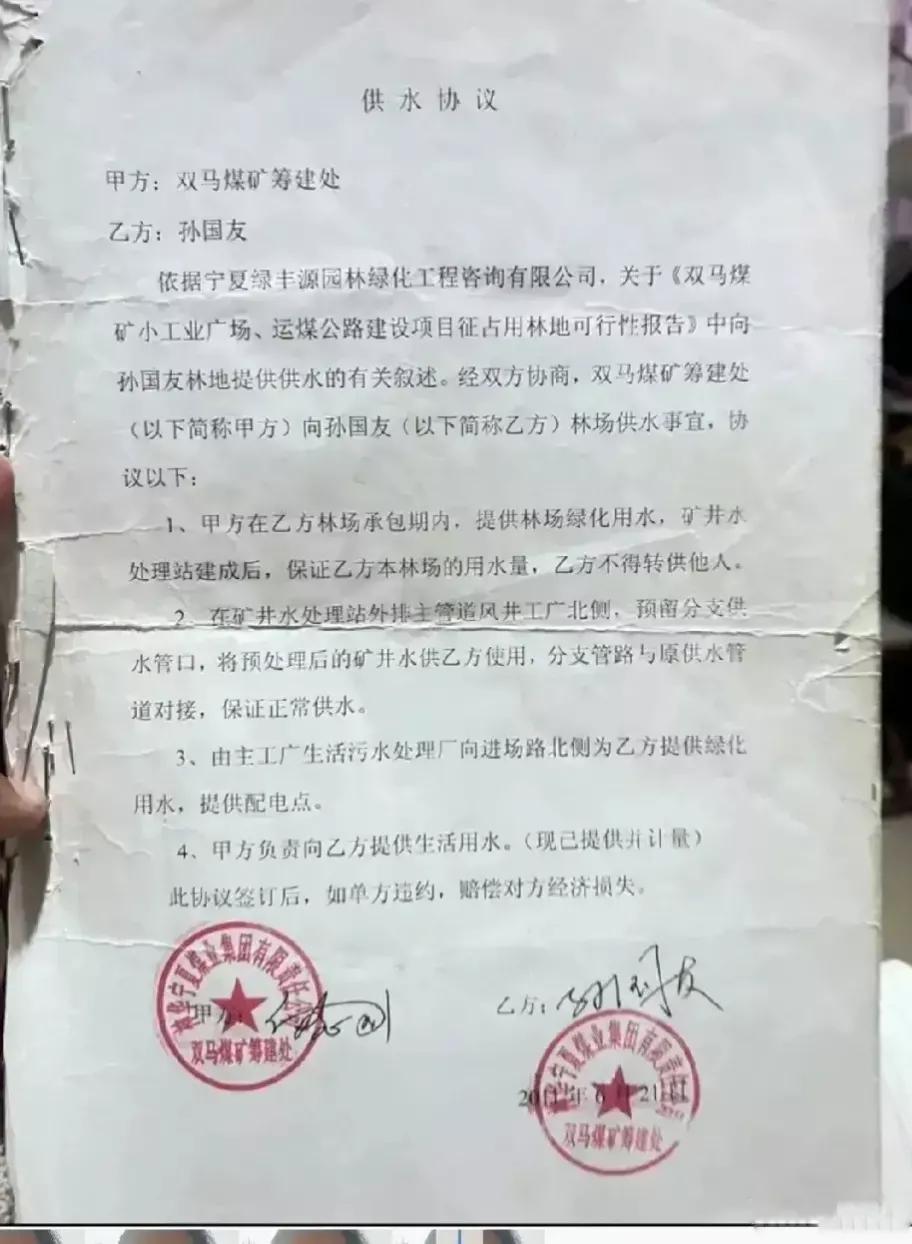 供水协议
甲方：双马煤矿筹建处
乙方：孙国友
依据宁夏绿丰源园林绿化工程咨询有限公司，关于《双马煤
矿小工业广场、运煤公路建设项目征占用林地可行性报告》中向
孙国友林地提供供水的有关叙述。经双方协商，双马煤矿筹建处
（以下简称甲方）向孙国友（以下简称乙方）林场供水事宜，协
议以下：
1、甲方在乙方林场承包期内，提供林场绿化用水，矿井水
处理站建成后，保证乙方本林场的用水量，乙方不得转供他人。
2、在矿井水处理站外排主管道风井工广北侧，预留分支供
水管口，将预处理后的矿井水供乙方使用，分支管路与原供水管
道对接，保证正常供水。
3、由主工广生活污水处理厂向进场路北侧为乙方提供绿化
用水，提供配电点。
4、甲方负责向乙方提供生活用水。（现已提供并计量）
此协议签订后，如单方违约，赔偿对方经济损失。
宁夏煤业集团有限责任公司
甲方：
双马煤矿筹建处
乙方：孙国友
宁夏煤业集团有限责任
2011年6月21日
双马煤矿筹建处